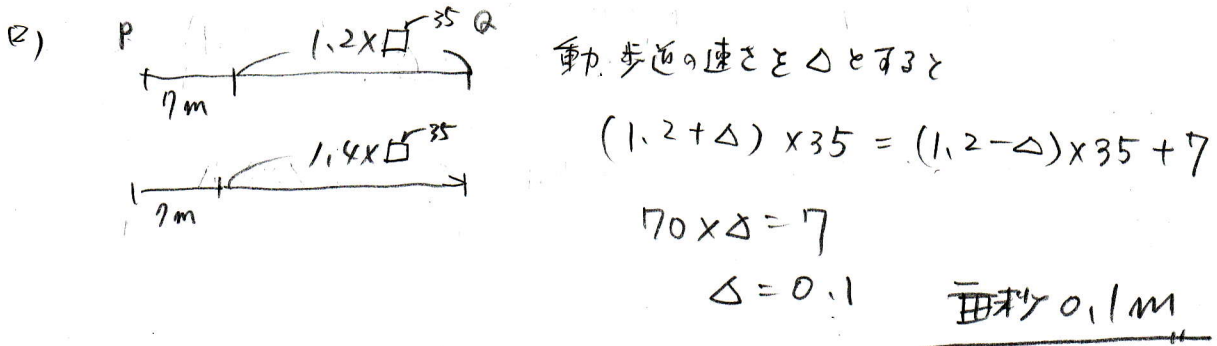 (2) P 1.2×□ 35 Q
7m
1.4×□ 35
7m
動く歩道の速さを△とすると
(1.2+△)×35=(1.2-△)×35+7
70×△=7
△=0.1
毎秒0.1m